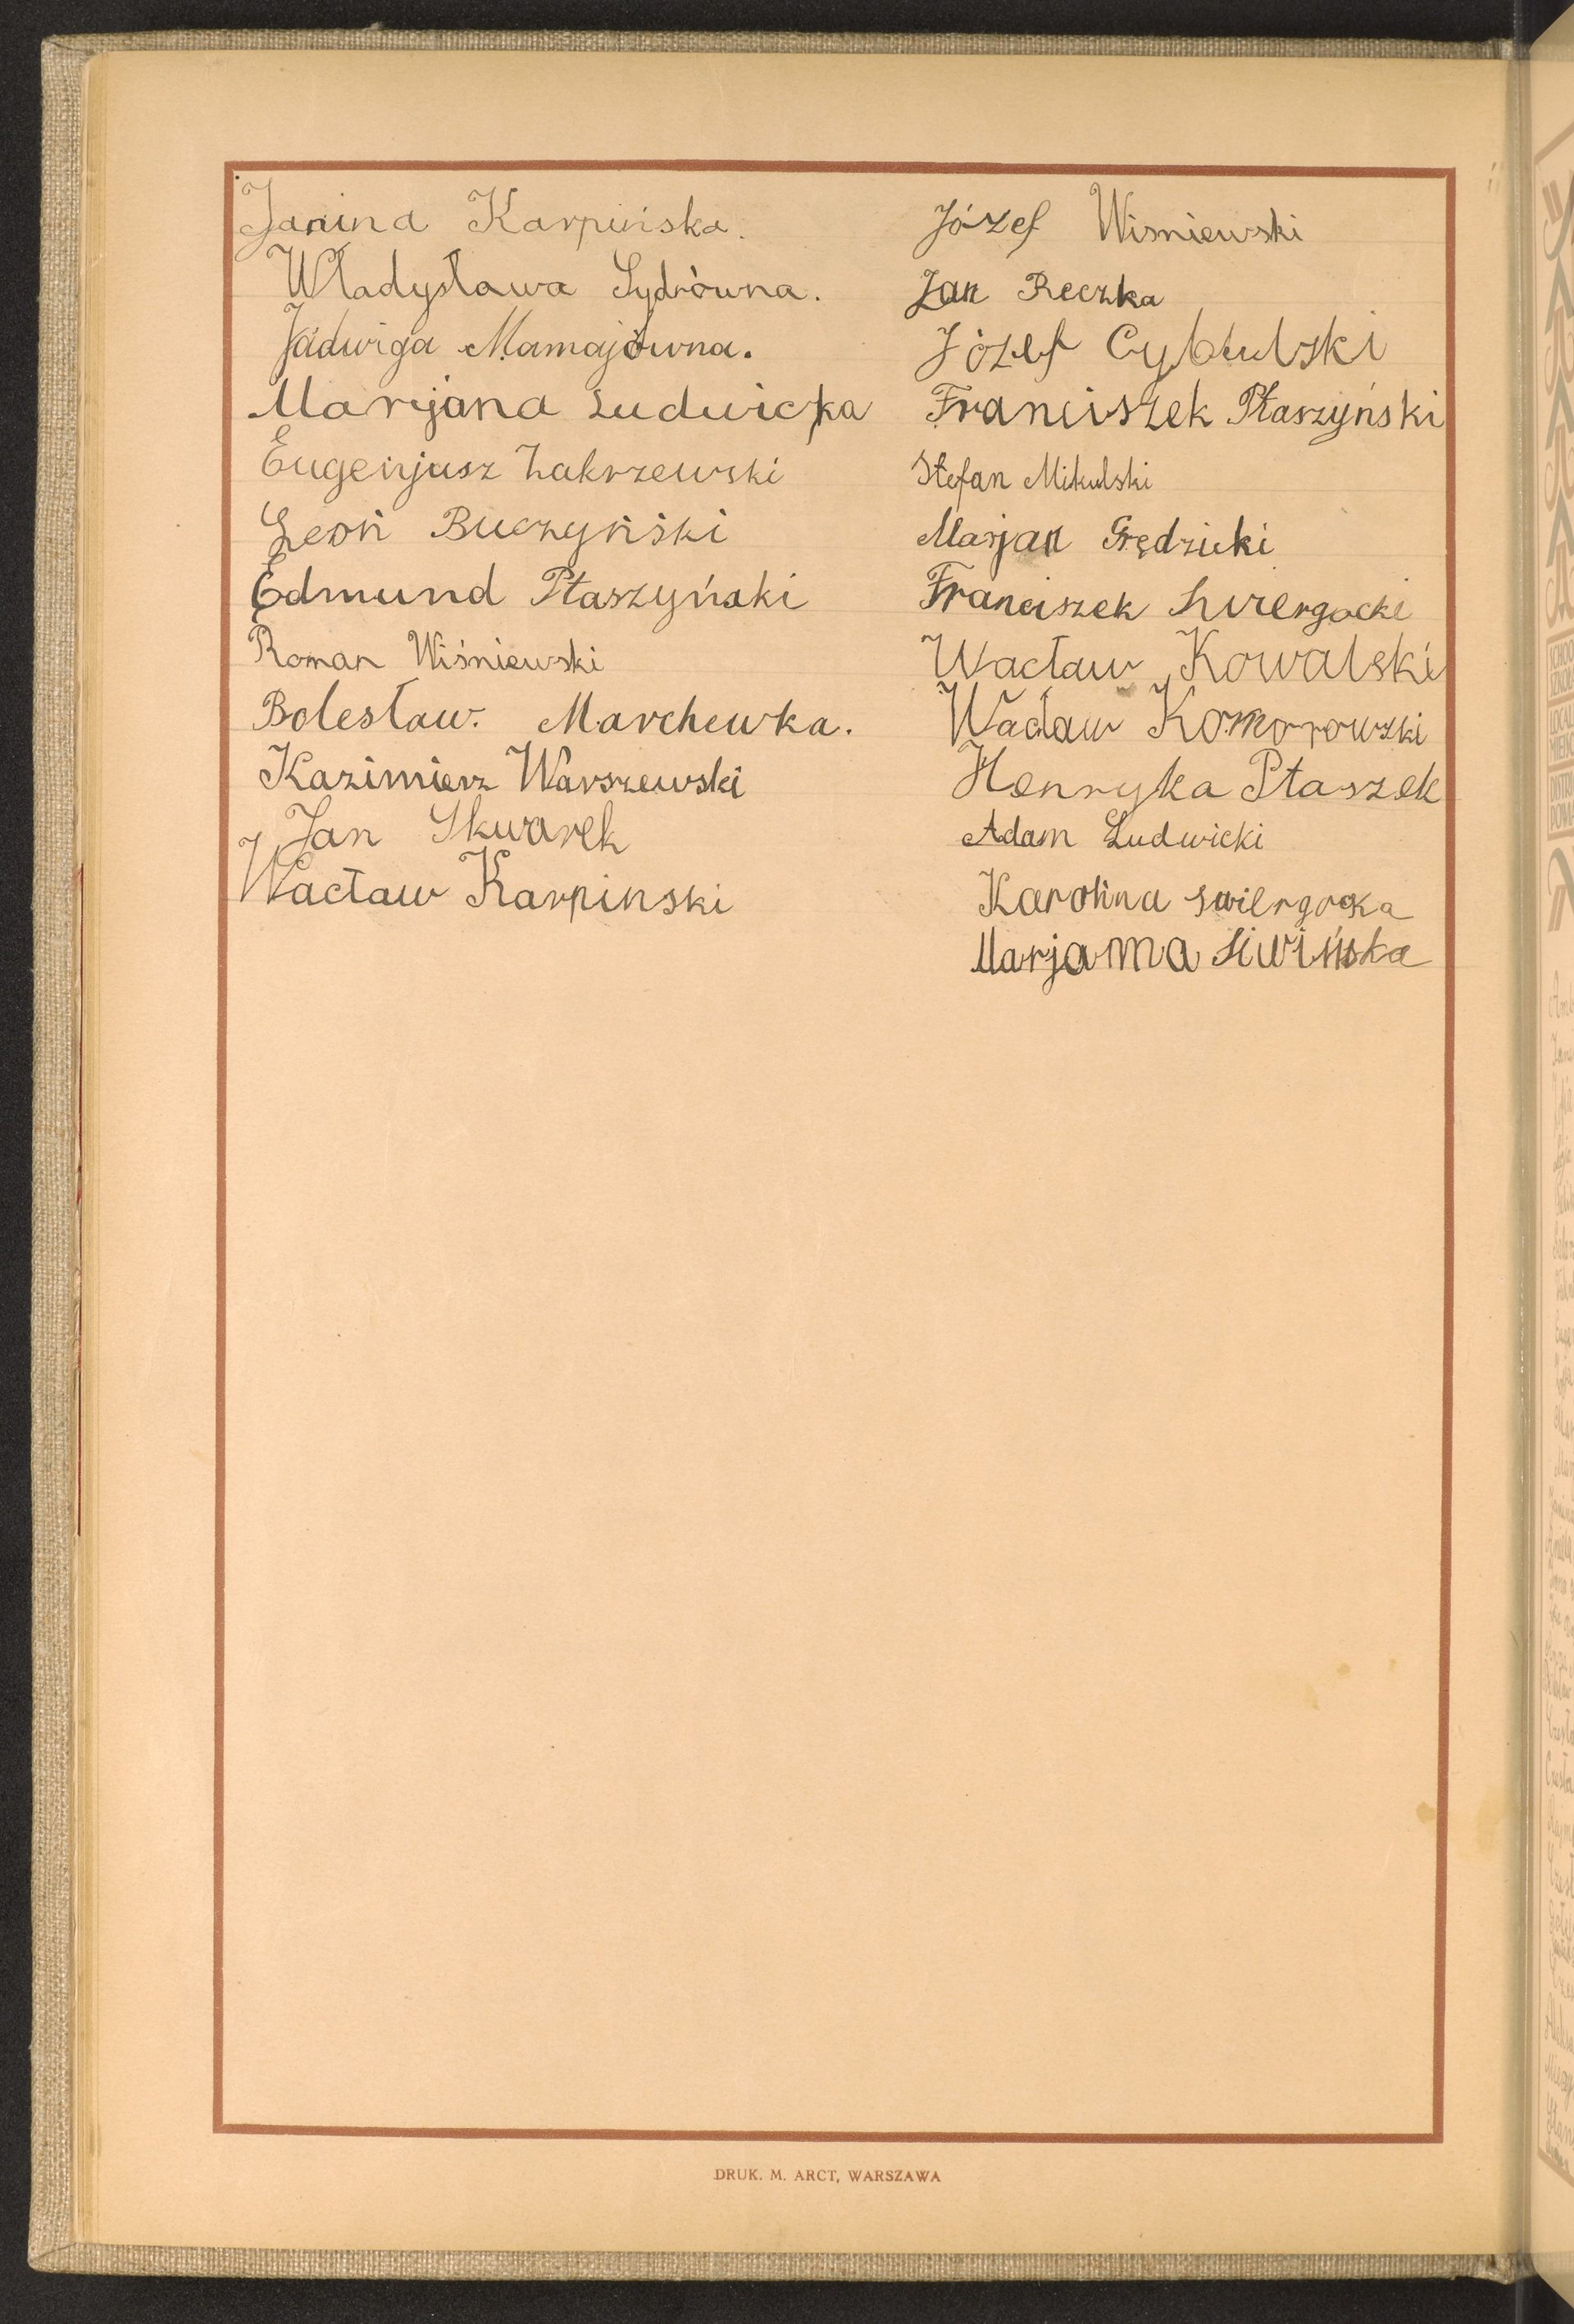 Janina Karpińska.
Władysława Sydrówna.
Jadwiga Mamajówna.
Marijana Ludwicka
Eugenjusz Zakrzewski
Leon Buczyński
Edmund Ptaszyński
Roman Wiśniewski
Bolesław. Marchewka.
Kazimierz Warszewski
Jan Skwarek
Wacław Karpinski
Józef Wisniewski
Jan Reczka
Józef Cybulski
Franciszek Ptaszyński
Stefan Mikulski
Marjan Grędzicki
Franciszek Swiergocki
Wacław Kowalski
Wacław Komorowski
Henryka Ptaszek
Adam Ludwicki
Karolina Swiergocka
Marjanna Siwińska
DRUK. M. ARCT, WARSZAWA